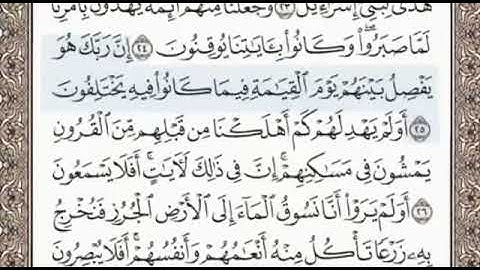 هُدًى لِّبَنِىٓ إِسْرَٰٓءِيلَ ٢٣ وَجَعَلْنَا مِنْهُمْ أَئِمَّةً يَهْدُونَ بِأَمْرِنَا
لَمَّا صَبَرُوا۟ۖ وَكَانُوا۟ بِـَٔايَٰتِنَا يُوقِنُونَ ٢٤ إِنَّ رَبَّكَ هُوَ
يَفْصِلُ بَيْنَهُمْ يَوْمَ ٱلْقِيَٰمَةِ فِيمَا كَانُوا۟ فِيهِ يَخْتَلِفُونَ
٢٥ أَوَلَمْ يَهْدِ لَهُمْ كَمْ أَهْلَكْنَا مِن قَبْلِهِم مِّنَ ٱلْقُرُونِ
يَمْشُونَ فِى مَسَٰكِنِهِمْۚ إِنَّ فِى ذَٰلِكَ لَـَٔايَٰتٍۚ أَفَلَا يَسْمَعُونَ
٢٦ أَوَلَمْ يَرَوْا۟ أَنَّا نَسُوقُ ٱلْمَآءَ إِلَى ٱلْأَرْضِ ٱلْجُرُزِ فَنُخْرِجُ
بِهِۦ زَرْعًا تَأْكُلُ مِنْهُ أَنْعَٰمُهُمْ وَأَنفُسُهُمْۚ أَفَلَا يُبْصِرُونَ